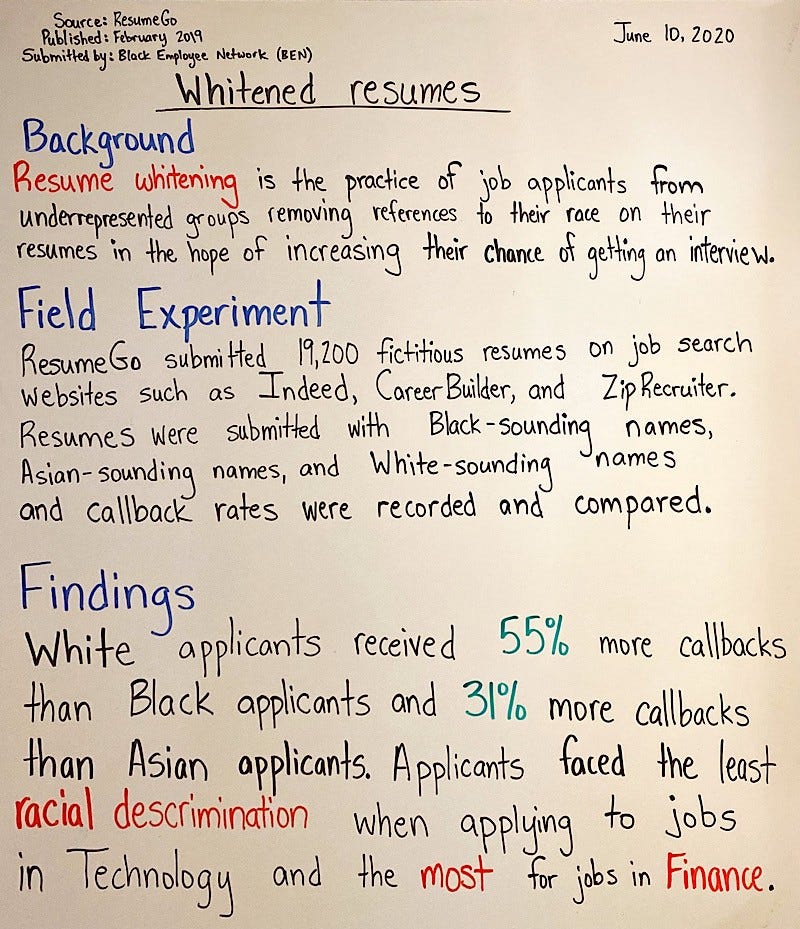 Source: ResumeGo
Published: February 2019
Submitted by: Black Employee Network (BEN)
June 10, 2020
Whitened resumes
Background
Resume whitening is the practice of job applicants from
underrepresented groups removing references to their race on their
resumes in the hope of increasing their chance of getting an interview.
Field Experiment
ResumeGo submitted 19,200 fictitious resumes on job search
websites such as Indeed, CareerBuilder, and ZipRecruiter.
Resumes were submitted with Black-sounding names,
Asian-sounding names, and White-sounding names
and callback rates were recorded and compared.
Findings
White applicants received 55% more callbacks
than Black applicants and 31% more callbacks
than Asian applicants. Applicants faced the least
racial descrimination when applying to jobs
in Technology and the most for jobs in Finance.